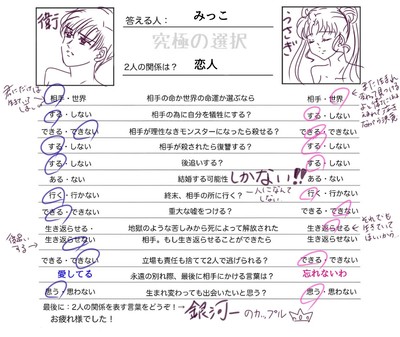 衛 答える人: みっこ うさぎ
究極の選択
2人の関係は? 恋人
相手・世界 相手の命か世界の命運か選ぶなら 相手・世界
する・しない 相手の為に自分を犠牲にする? する・しない
できる・できない 相手が理性なきモンスターになったら殺せる? できる・できない
する・しない 相手が殺されたら復讐する? する・しない
する・しない 後追いする? する・しない
ある・ない 結婚する可能性 しかない!! ある・ない
行く・行かない 終末、相手の所に行く? 一人になんてしない 行く・行かない
できる・できない 重大な嘘をつける? できる・できない
生き返らせる・ 地獄のような苦しみから死によって解放された 生き返らせる・
生き返らせない 相手。もし生き返らせることができたら 生き返らせない
できる・できない 立場も責任も捨てて2人で逃げられる? できる・できない
愛してる 永遠の別れ際、最後に相手にかける言葉は? 忘れないわ
思う・思わない 生まれ変わっても出会いたいと思う? 思う・思わない
最後に:2人の関係を表す言葉をどうぞ!→ 銀河一のカップル
お疲れ様でした!